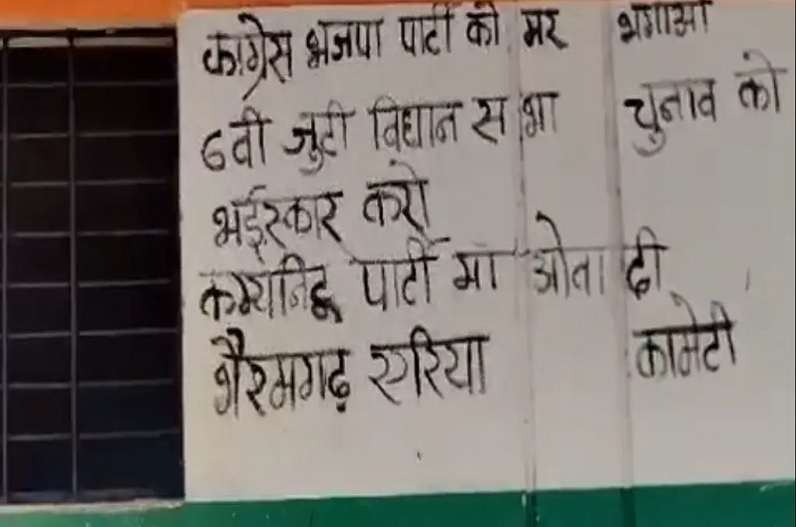 कांग्रेस भजपा पार्टी को मर भगाओ
6वी जुटी विधान सभा चुनाव को
भईस्कार करो
कम्यनिट्ट पार्टी मा ओवा दी
भैरमगढ़ एरिया कामेटी